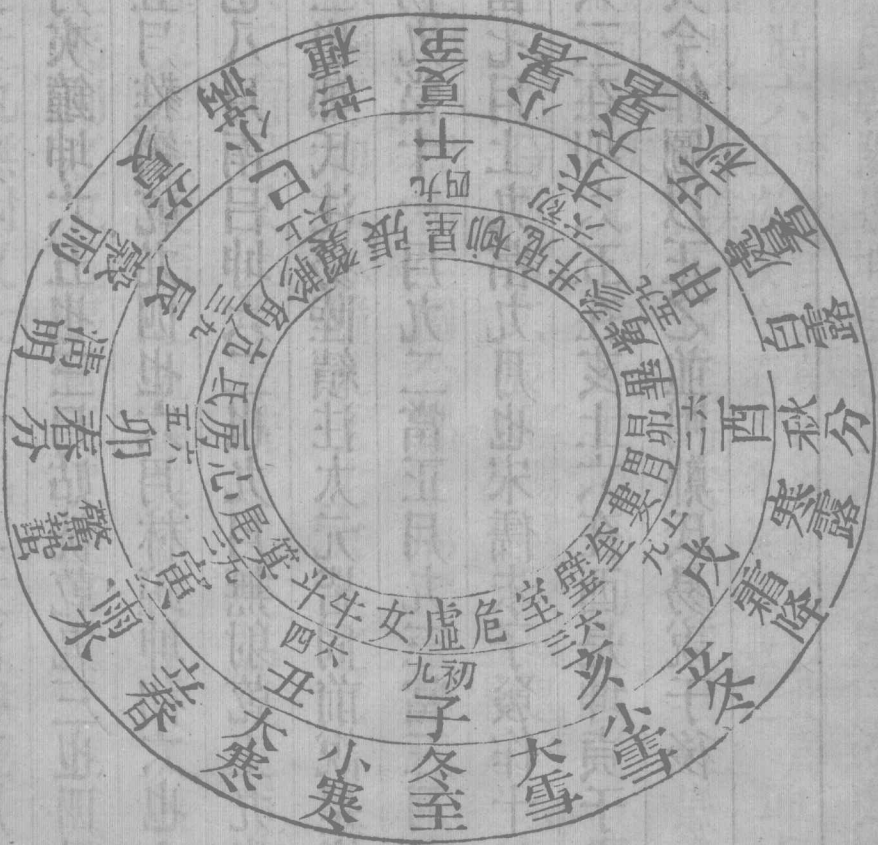 冬至
小寒
大寒
立春
雨水
驚蟄
春分
清明
穀雨
立夏
小滿
芒種
夏至
小暑
大暑
立秋
處暑
白露
秋分
寒露
霜降
立冬
小雪
大雪
子
丑
寅
卯
辰
巳
午
未
申
酉
戌
亥
初九
六四
九二
六五
九三
上六
九四
初六
九五
六二
上九
六三
虛
女
牛
斗
箕
尾
心
房
氐
亢
角
軫
翼
張
星
柳
鬼
井
參
觜
畢
昴
胃
婁
奎
壁
室
危